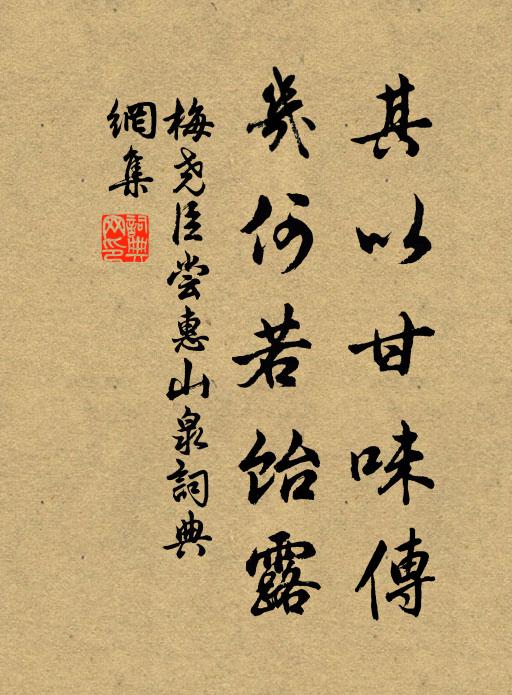 其以甘味傳
幾何若飴露
梅尧臣尝惠山泉詞典
網集
詞典網印